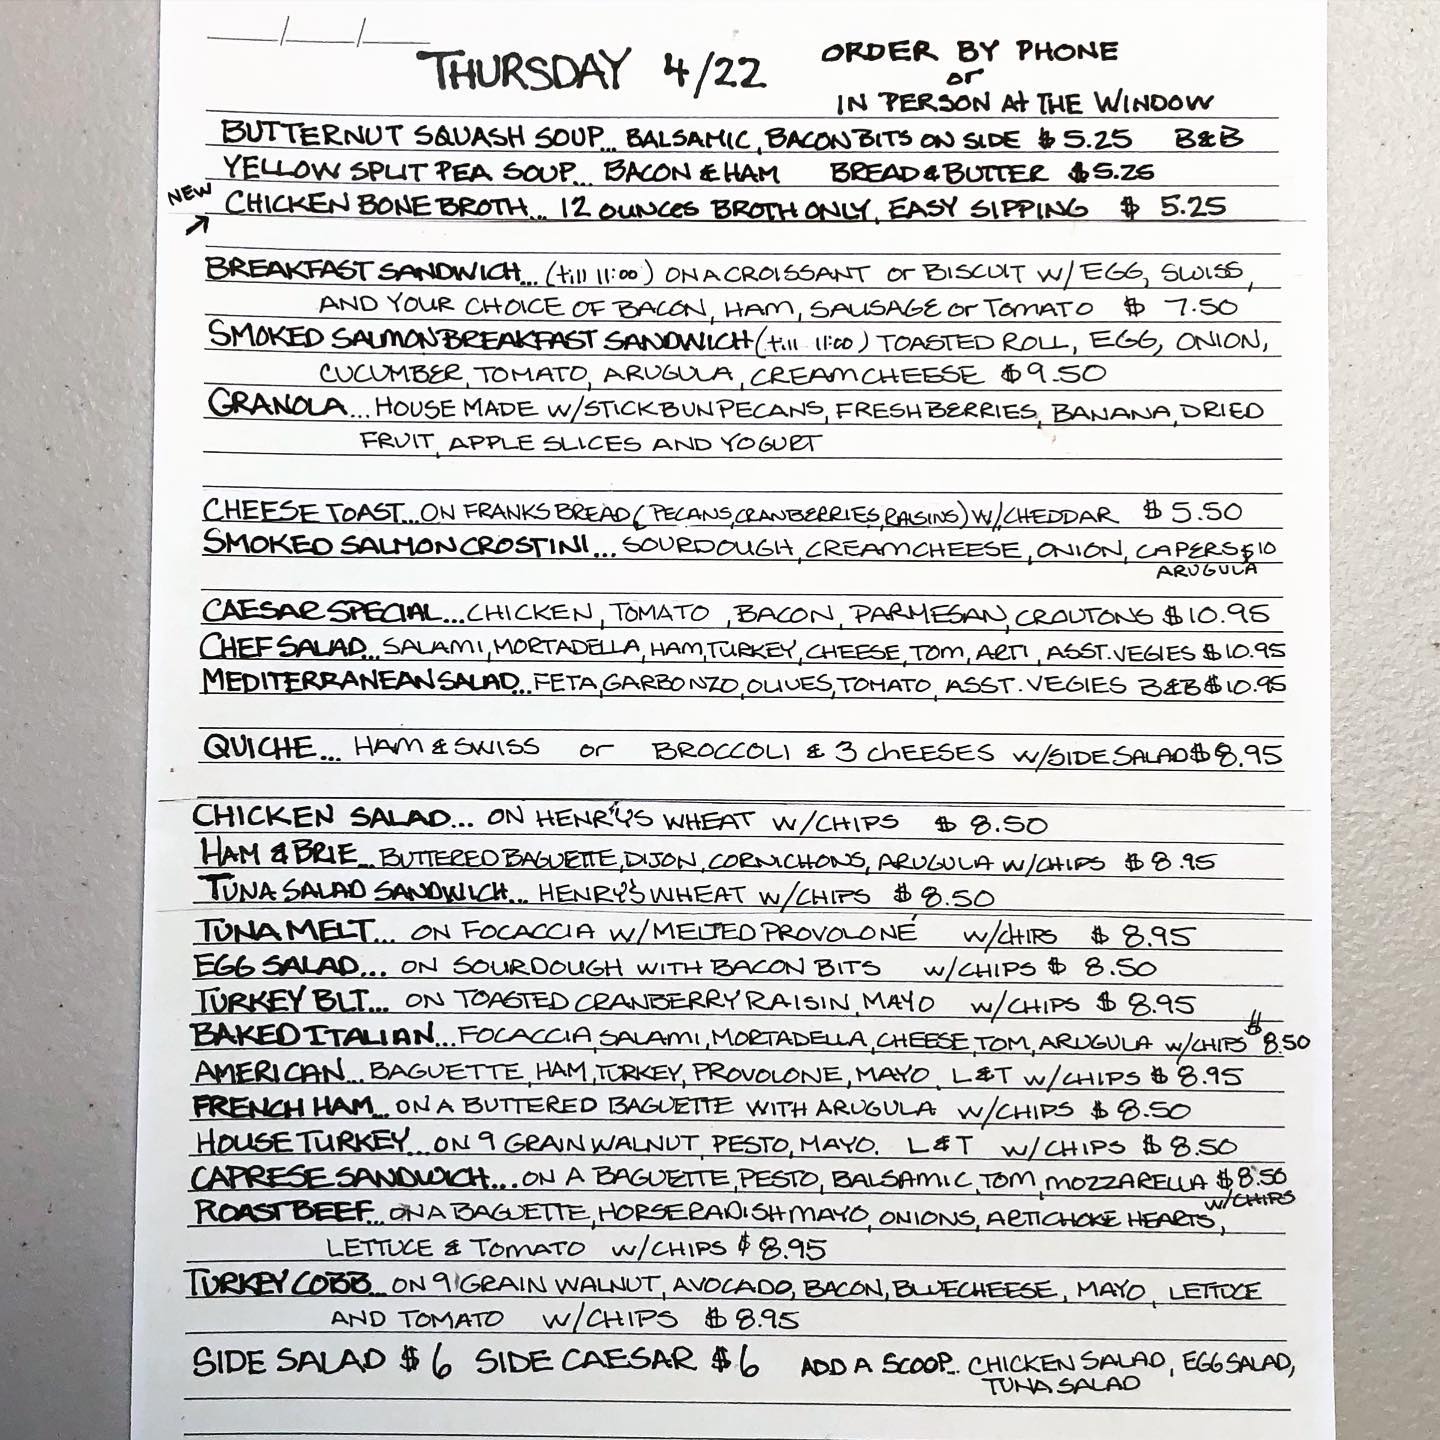 THURSDAY 4/22
ORDER BY PHONE
or
IN PERSON At THE WINDOW
BUTTERNUT SQUASH SOUP... BALSAMIC, BACON BITS ON SIDE $5.25 B&B
YELLOW SPLIT PEA SOUP... BACON & HAM BREAD & BUTTER $5.25
NEW
CHICKEN BONE BROTH... 12 OUNCES BROTH ONLY, EASY SIPPING $ 5.25
BREAKFAST SANDWICH... (till 11:00) ON A CROISSANT or BISCUIT W/EGG, SWISS,
AND YOUR CHOICE OF BACON, HAM, SAUSAGE or TOMATO $ 7.50
SMOKED SALMON BREAKFAST SANDWICH (till 11:00) TOASTED ROLL, EGG, ONION,
CUCUMBER, TOMATO, ARUGULA, CREAM CHEESE $9.50
GRANOLA... HOUSE MADE W/STICKBUN PECANS, FRESH BERRIES, BANANA, DRIED
FRUIT, APPLE SLICES AND YOGURT
CHEESE TOAST... ON FRANKS BREAD (PECANS, CRANBERRIES, RAISINS) W/CHEDDAR $5.50
SMOKED SALMON CROSTINI... SOURDOUGH, CREAM CHEESE, ONION, CAPERS $10
ARUGULA
CAESAR SPECIAL... CHICKEN, TOMATO, BACON, PARMESAN, CROUTONS $10.95
CHEF SALAD... SALAMI, MORTADELLA, HAM, TURKEY, CHEESE, TOM, ARTI, ASST. VEGIES $10.95
MEDITERRANEAN SALAD... FETA, GARBONZO, OLIVES, TOMATO, ASST. VEGIES B&B $10.95
QUICHE... HAM & SWISS or BROCCOLI & 3 CHEESES W/SIDE SALAD $8.95
CHICKEN SALAD... ON HENRY'S WHEAT W/CHIPS $8.50
HAM & BRIE... BUTTERED BAGUETTE, DIJON, CORNICHONS, ARUGULA W/CHIPS $8.95
TUNA SALAD SANDWICH... HENRY'S WHEAT W/CHIPS $8.50
TUNA MELT... ON FOCACCIA W/MELTED PROVOLONE W/CHIPS $ 8.95
EGG SALAD... ON SOURDOUGH WITH BACON BITS W/CHIPS $ 8.50
TURKEY BLT... ON TOASTED CRANBERRY RAISIN, MAYO W/CHIPS $ 8.95
BAKED ITALIAN... FOCACCIA, SALAMI, MORTADELLA, CHEESE, TOM, ARUGULA W/CHIPS $8.50
AMERICAN... BAGUETTE, HAM, TURKEY, PROVOLONE, MAYO, L&T W/CHIPS $ 8.95
FRENCH HAM... ON A BUTTERED BAGUETTE WITH ARUGULA W/CHIPS $8.50
HOUSE TURKEY... ON 9 GRAIN WALNUT, PESTO, MAYO. L&T W/CHIPS $8.50
CAPRESE SANDWICH... ON A BAGUETTE, PESTO, BALSAMIC, TOM, MOZZARELLA $8.50
W/CHIPS
ROAST BEEF... ON A BAGUETTE, HORSERADISH MAYO, ONIONS, ARTICHOKE HEARTS,
LETTUCE & TOMATO W/CHIPS $8.95
TURKEY COBB... ON 9 GRAIN WALNUT, AVOCADO, BACON, BLUECHEESE, MAYO, LETTUCE
AND TOMATO W/CHIPS $8.95
SIDE SALAD $6 SIDE CAESAR $6 ADD A SCOOP... CHICKEN SALAD, EGG SALAD,
TUNA SALAD